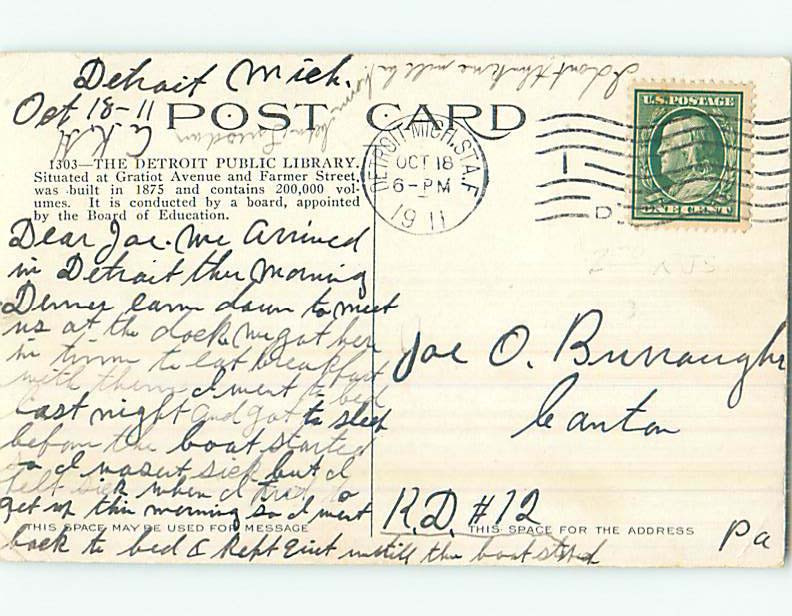 Detroit Mich.
Oct 18-11
POST CARD
U.S. POSTAGE
ONE CENT
DETROIT, MICH. STA. F
OCT 18
6-PM
1911
D.
1303—THE DETROIT PUBLIC LIBRARY.
Situated at Gratiot Avenue and Farmer Street,
was built in 1875 and contains 200,000 vol-
umes. It is conducted by a board, appointed
by the Board of Education.
Dear Joe. We Arrived
in Detroit this Morning
came down to meet
us at the dock. We got her
in time to eat breakfast
with them I went to bed
Last night and got to sleep
before the boat started
so I wasent sick but I
felt sick when I tried to
get up this morning so I went
back to bed & kept quiet untill the boat stped
I dont think we will be home
Joe O. Burroughs
Canton
R.D. #12
Pa
THIS SPACE MAY BE USED FOR MESSAGE
THIS SPACE FOR THE ADDRESS